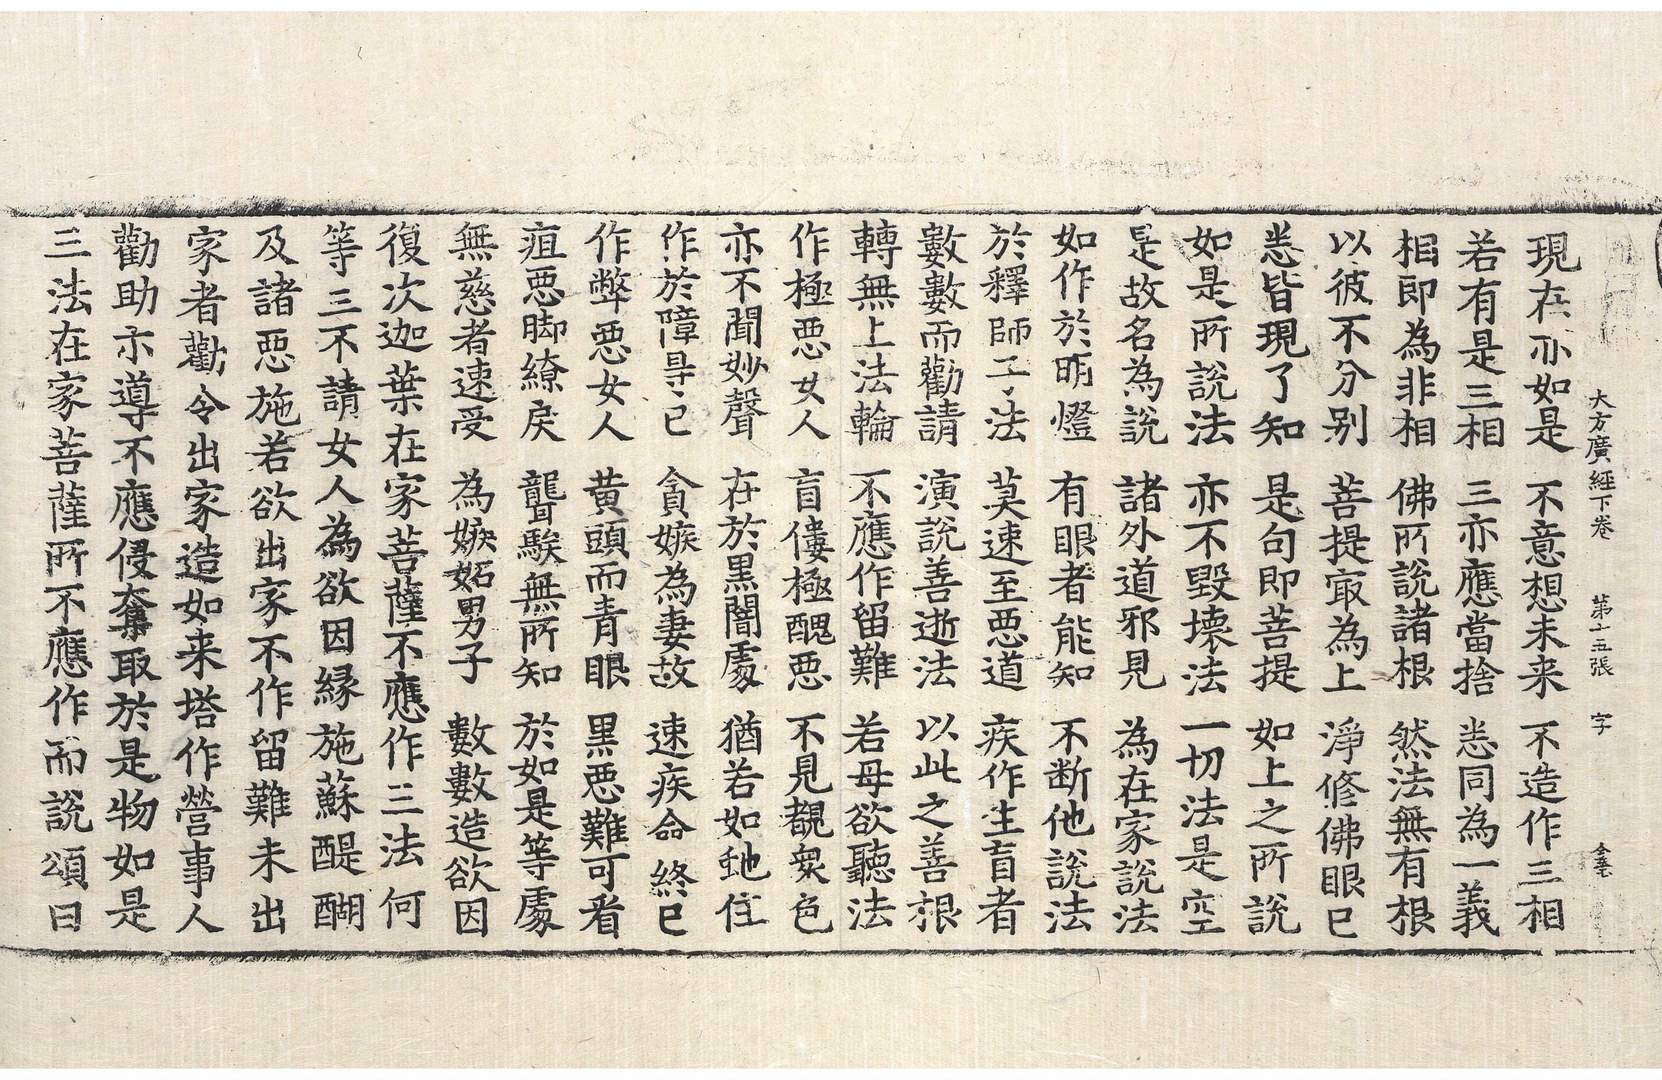 大方廣經下卷　第十五張　字
現在亦如是　不意想未来　不造作三相
若有是三相　三亦應當捨　悉同為一義
相即為非相　佛所說諸根　然法無有根
以彼不分别　菩提㝡為上　淨修佛眼已
悉皆現了知　是句即菩提　如上之所說
如是所說法　亦不毀壞法　一切法是空
是故名為說　諸外道邪見　為在家說法
如作於明燈　有眼者能知　不断他說法
於釋師子法　莫速至惡道　疾作生盲者
數數而勸請　演說善逝法　以此之善根
轉無上法輪　不應作留難　若母欲聽法
作極惡女人　盲僂極醜惡　不見覩衆色
亦不聞妙聲　在於黒闇處　猶若如虵住
作於障㝵已　貪嫉為妻故　速疾命終已
作弊惡女人　黄頭而青眼　黒惡難可看
疽惡脚繚戾　聾騃無所知　於如是等處
無慈者速受　為嫉妬男子　數數造欲因
復次迦葉在家菩薩不應作三法何
等三不請女人為欲因縁施蘇醍醐
及諸惡施若欲出家不作留難未出
家者勸令出家造如来塔作營事人
勸助示導不應侵奪取於是物如是
三法在家菩薩所不應作而說頌曰